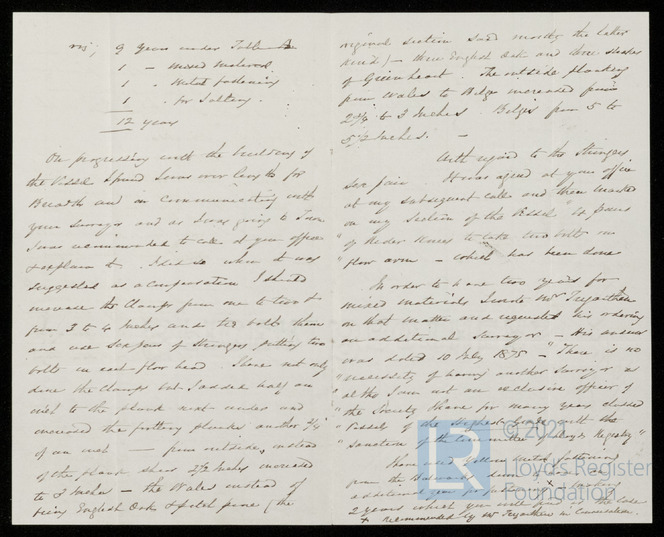 viz; 9 Years under Table A
1 - mixed material
1 " Metal fastening
1 " for Salting
12 years
On progressing with the building of
the Vessel I found I was over length for
Breadth and in communicating with
your Surveyor and as I was going to Town
I was recommended to call at your office
& explain it. I did so when it was
suggested as a compensation I should
increase the Clamps from one to two &
from 3 to 4 Inches and bolt them
and use six pairs of Stringers putting two
bolts in each floor head. I have not only
done the Clamps but I added half an
inch to the plank next under and
increased the planks another 1/2
of an inch — from outside, instead
of the plank sheer 2 1/2 Inches increased
to 3 Inches — the Wales instead of
being English Oak & pitch pine (the
original section said mostly the latter
) — three English Oak and three strakes
of Greenheart. The outside planking
from Wales to Bilge increased from
2 1/2 to 3 Inches. Bilges from 5 to
5 1/2 Inches. —
With regard to the Stringers
Six pair. It was agreed at your office
at my subsequent call and then marked
on my section of the Vessel "
" of Rider Knees to take two bolts in
" floor arm — which has been done
In order to have two years for
mixed materials I wrote Mr
on that matter and requested his ordering
an additional Surveyor — His answer
was dated 10 July 1875 — "There is no
"necessity of having another Surveyor as
"altho I am not an exclusive officer of
"the Society I have for many years classed
"Vessels of the highest grade with the
"sanction of the Committee of Lloyds Registry"
metal fastening
from the
additional year for
2 years which you will
+ recommended by Mr in
© 2021
LR
Lloyd's Register
Foundation